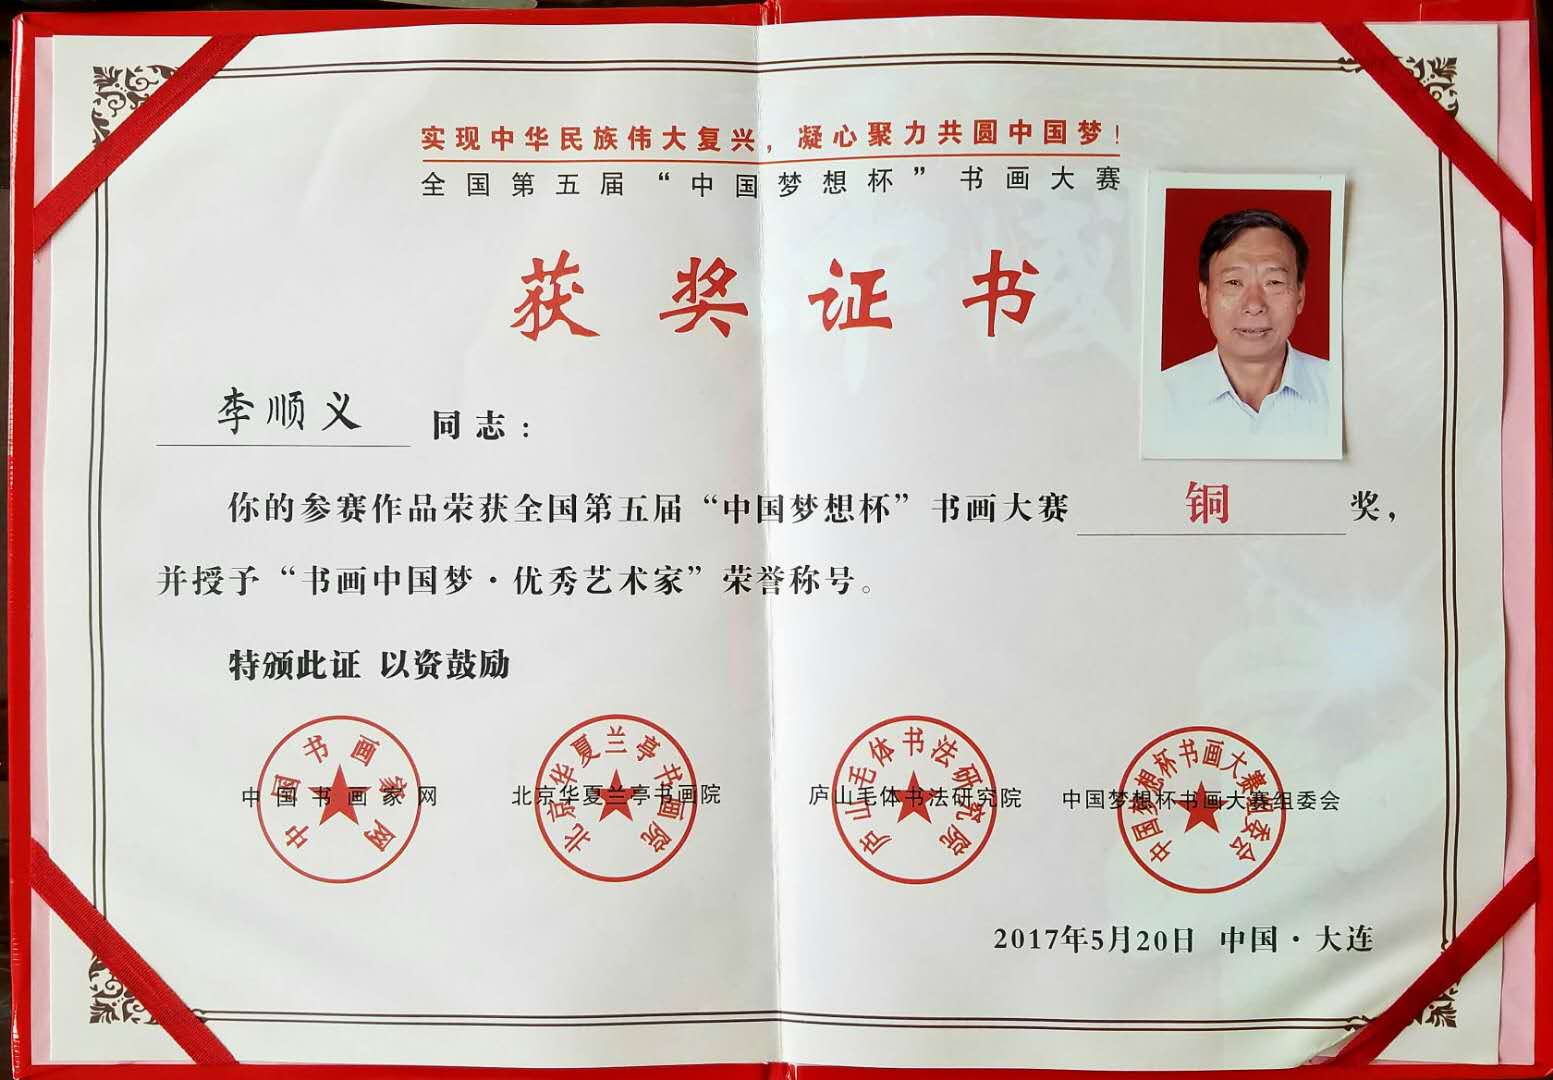 实现中华民族伟大复兴，凝心聚力共圆中国梦！
全国第五届“中国梦想杯”书画大赛
获奖证书
李顺义 同志：
你的参赛作品荣获全国第五届“中国梦想杯”书画大赛 铜 奖，
并授予“书画中国梦·优秀艺术家”荣誉称号。
特颁此证 以资鼓励
中国书画家网 北京华夏兰亭书画院 庐山毛体书法研究院 中国梦想杯书画大赛组委会
中国书画家网
北京华夏兰亭书画院
庐山毛体书法研究院
中国梦想杯书画大赛组委会
2017年5月20日 中国·大连